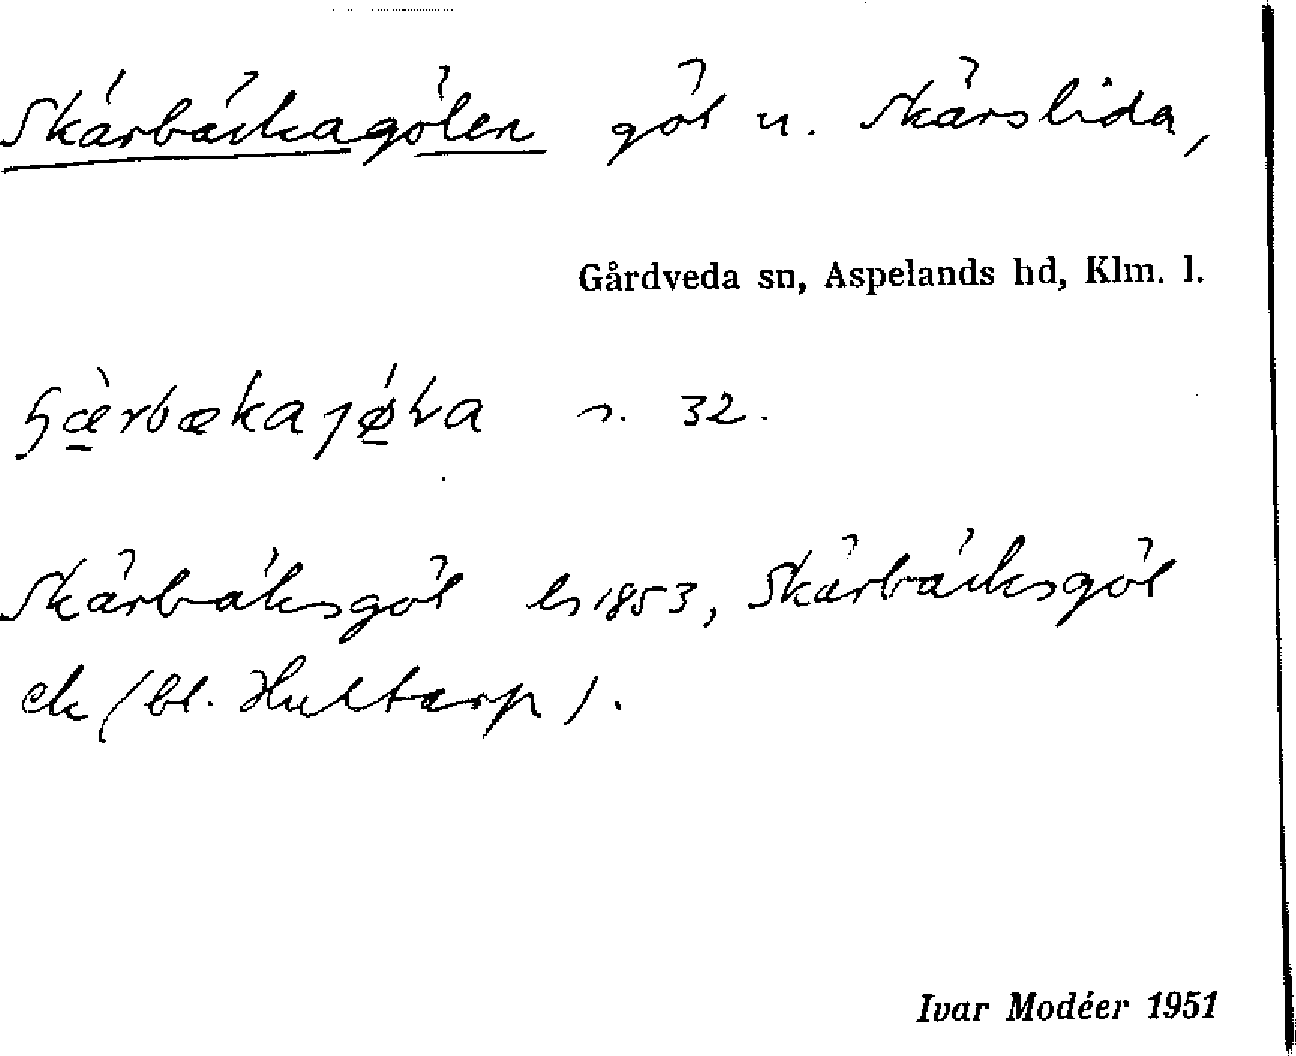 Skärbäckagölen göl u. Skärslida,
Gårdveda sn, Aspelands hd, Klm. l.
s. 32.
Skärbäksgöl ls 1853, Skärbäcksgöl
ek (bl. Hultarp).
Ivar Modéer 1951